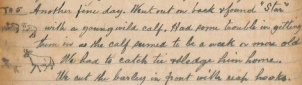 TUE Another fine day. Went out on back & found "Star"
with a young wild calf. Had some trouble in getting
them in as the calf seemed to be a week or more old
We had to catch tie & sledge him home.
We cut the barley in front with reap hooks.